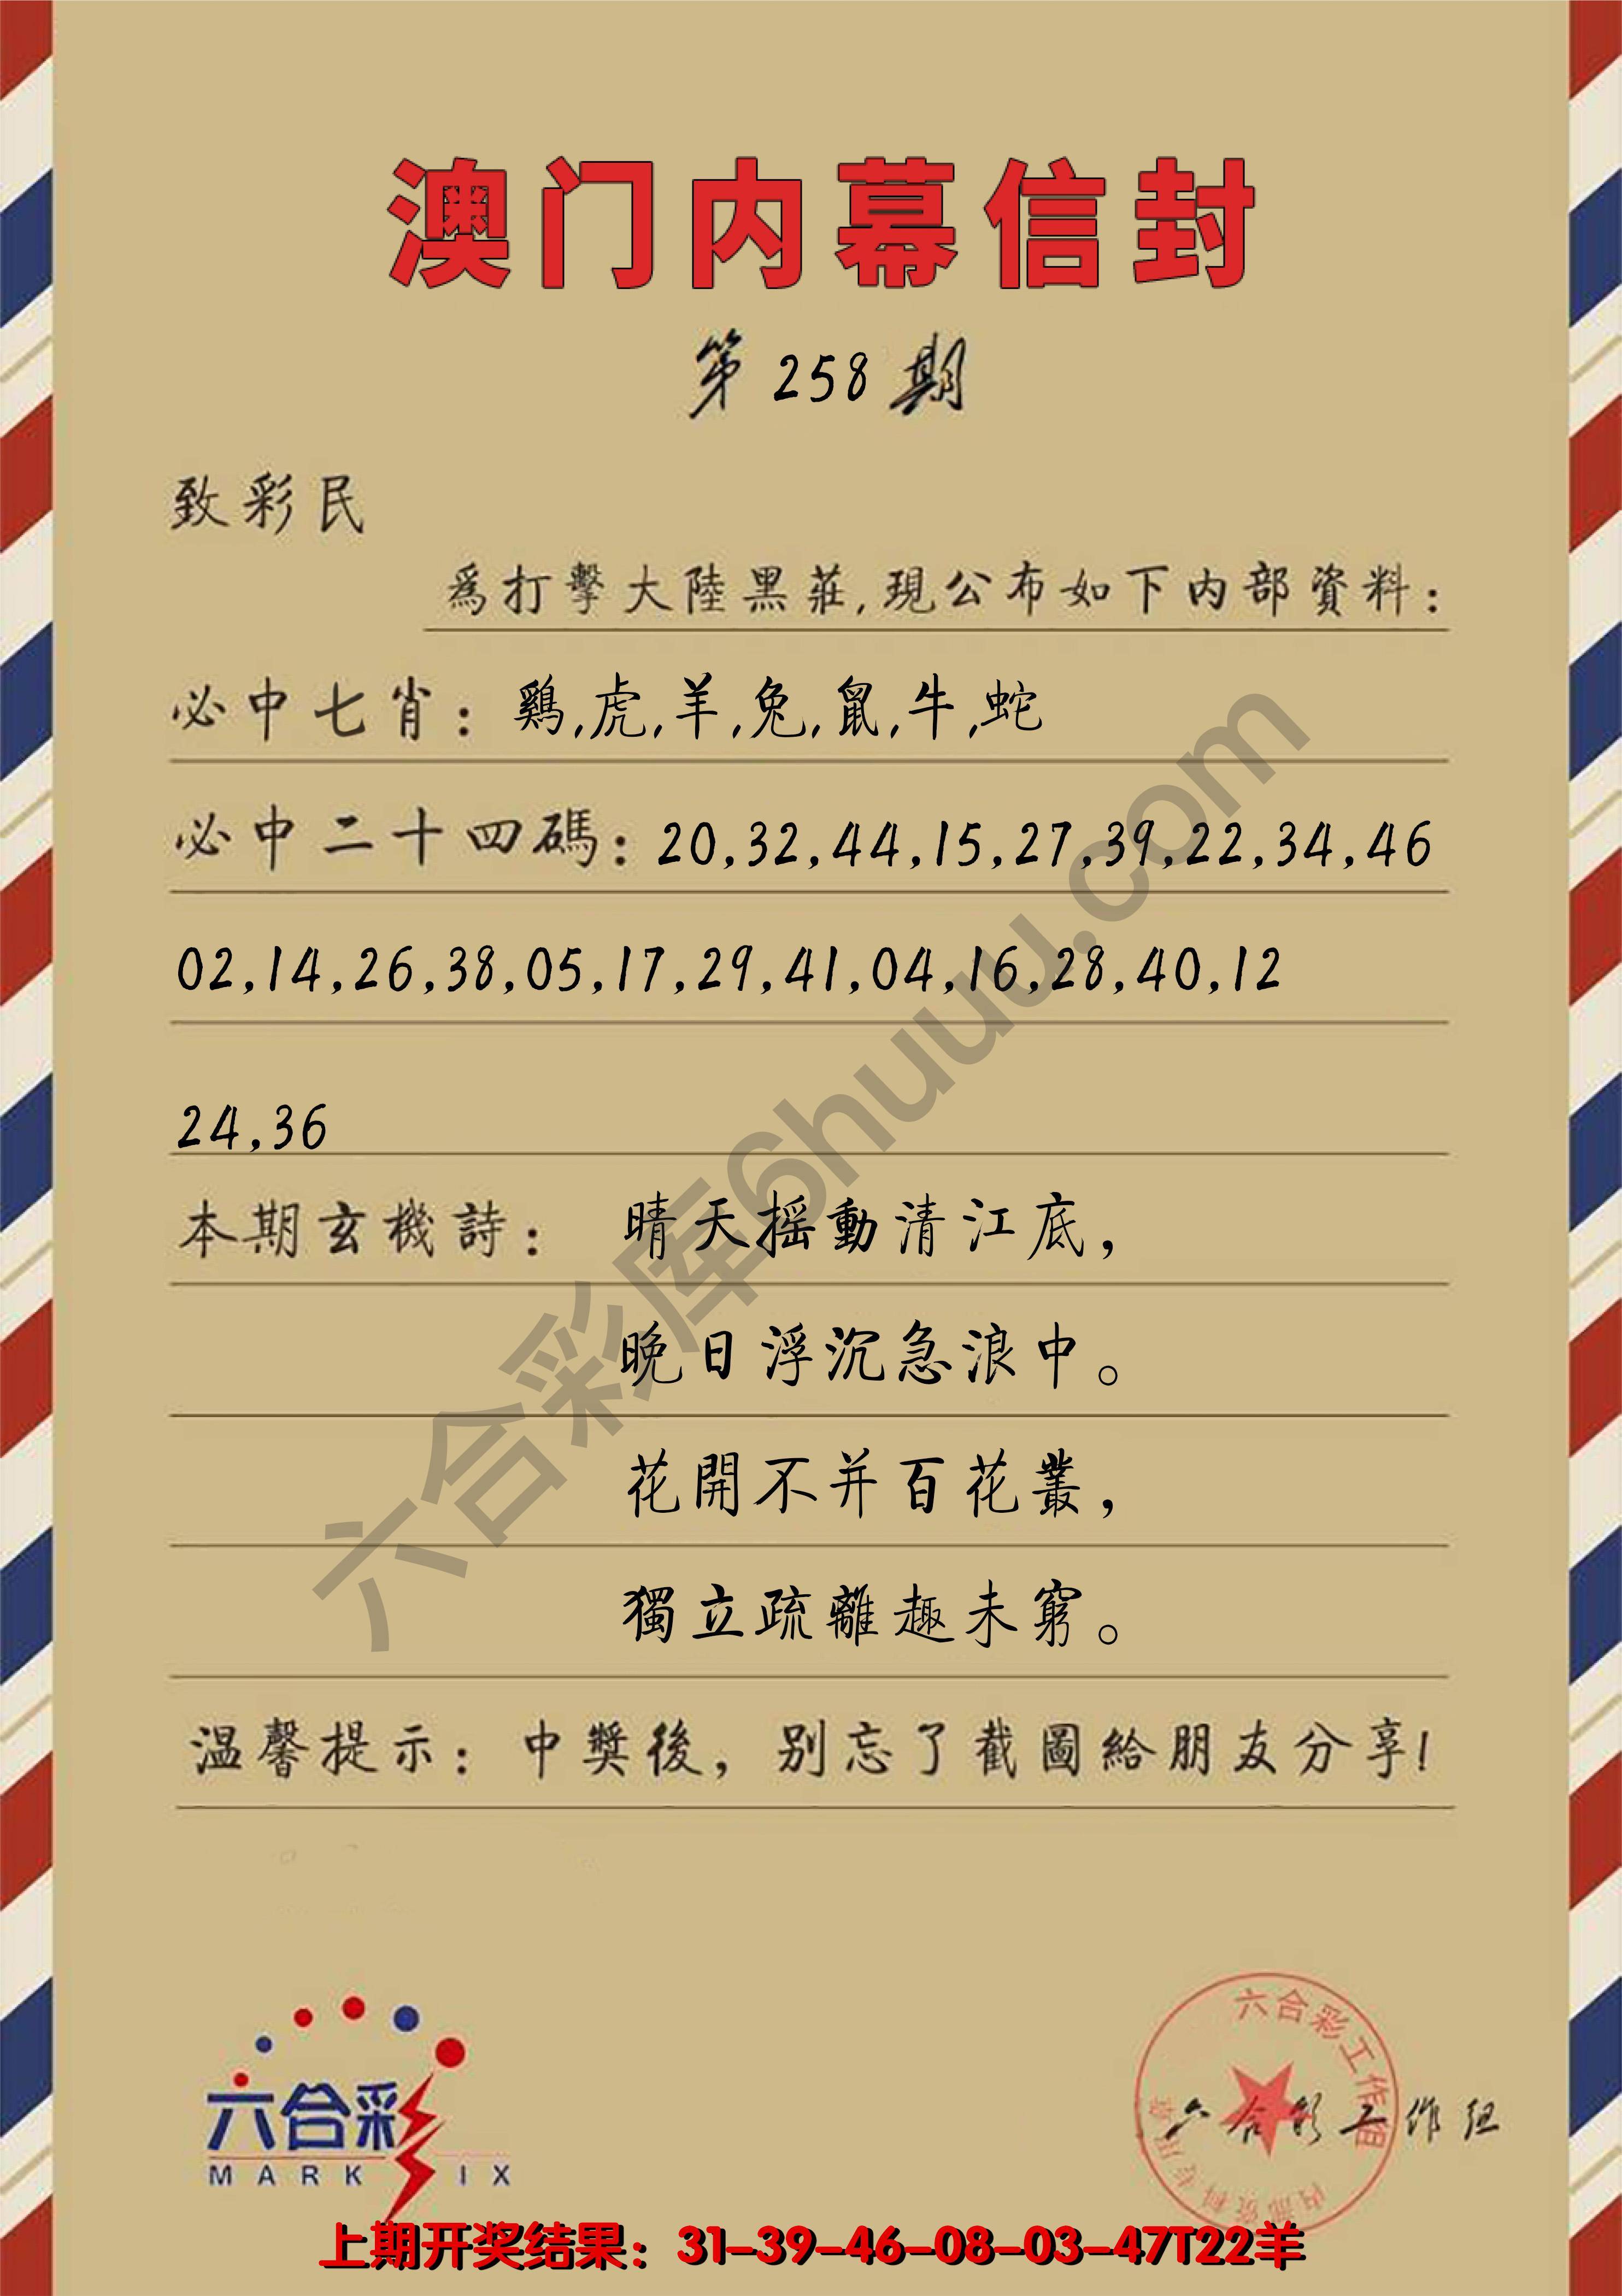 澳门内幕信封
第258期
致彩民
爲打擊大陸黑莊,現公布如下内部資料:
必中七肖: 鷄,虎,羊,兔,鼠,牛,蛇
必中二十四碼: 20,32,44,15,27,39,22,34,46
02,14,26,38,05,17,29,41,04,16,28,40,12
24,36
本期玄機詩: 晴天摇動清江底,
晚日浮沉急浪中。
花開不并百花叢,
獨立疏離趣未窮。
温馨提示: 中獎後, 别忘了截圖給朋友分享!
六合彩库6huuu.com
六合彩
MARK IX
六合彩工作组
内部资料专用章
六合彩工作组
上期开奖结果: 31-39-46-08-03-47T22羊